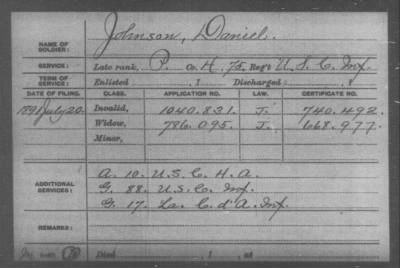 NAME OF SOLDIER: Johnson, Daniel.
SERVICE: Late rank, P. Co. H, 75, Reg't U.S.C. Inf.
TERM OF SERVICE: Enlisted , 1 Discharged , 1
DATE OF FILING. CLASS. APPLICATION NO. LAW. CERTIFICATE NO.
1891 July 20 Invalid, 1040.831. J. 740.492.
Widow, 786.095. J. 668.977
Minor,
ADDITIONAL SERVICES:
A. 10. U.S.C. H.A.
G. 88. U.S.C. Inf.
G. 17. La. C. d'A. Inf.
REMARKS:
Died , 1 , at